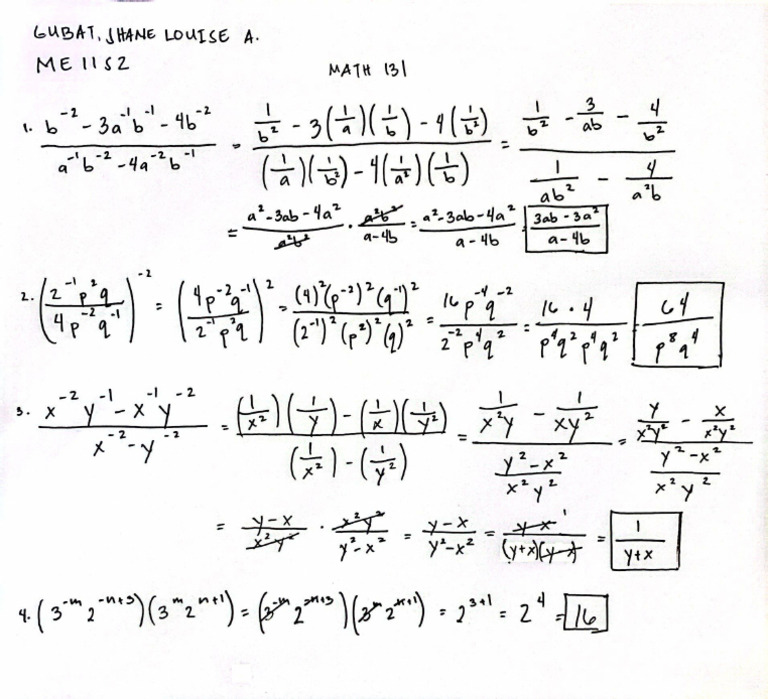 GUBAT, SHANE LOUISE A.
ME 11S2
MATH 131
1. (b^-2 - 3a^-1 b^-1 - 4b^-2)/(a^-1 b^-2 - 4a^-2 b^-1) = (1/b^2 - 3(1/a)(1/b) - 4(1/b^2))/((1/a)(1/b^2) - 4(1/a^2)(1/b)) = (1/b^2 - 3/ab - 4/b^2)/(1/ab^2 - 4/a^2b)
= (a^2 - 3ab - 4a^2)/(a^2b^2) · (a^2b^2)/(a - 4b) = (a^2 - 3ab - 4a^2)/(a - 4b) = (3ab - 3a^2)/(a - 4b)
2. ((2^-1 p^2 q)/(4p^-2 q^-1))^-2 = ((4p^-2 q^-1)/(2^-1 p^2 q))^2 = ((4)^2 (p^-2)^2 (q^-1)^2)/((2^-1)^2 (p^2)^2 (q)^2) = (16p^-4 q^-2)/(2^-2 p^4 q^2) = (16 · 4)/(p^4 q^2 p^4 q^2) = 64/(p^8 q^4)
3. (x^-2 y^-1 - x^-1 y^-2)/(x^-2 - y^-2) = ((1/x^2)(1/y) - (1/x)(1/y^2))/((1/x^2) - (1/y^2)) = (1/x^2y - 1/xy^2)/((y^2 - x^2)/(x^2y^2)) = (y/x^2y^2 - x/x^2y^2)/((y^2 - x^2)/(x^2y^2))
= (y - x)/(x^2y^2) · (x^2y^2)/(y^2 - x^2) = (y - x)/(y^2 - x^2) = (y - x)^1/((y + x)(y - x)) = 1/(y + x)
4. (3^-m 2^-n+3)(3^m 2^n+1) = (3^-m 2^-n+3)(3^m 2^n+1) = 2^3+1 = 2^4 = 16